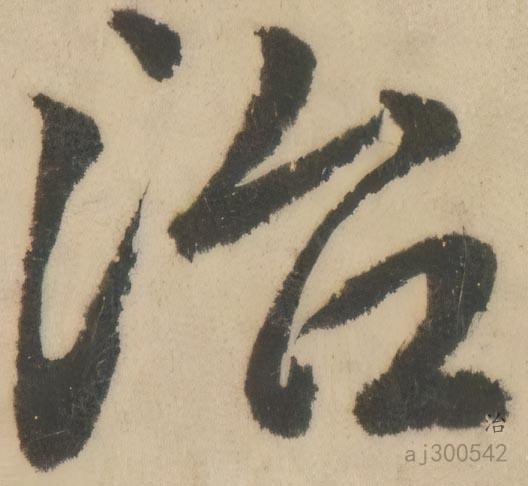 治
治
aj300542